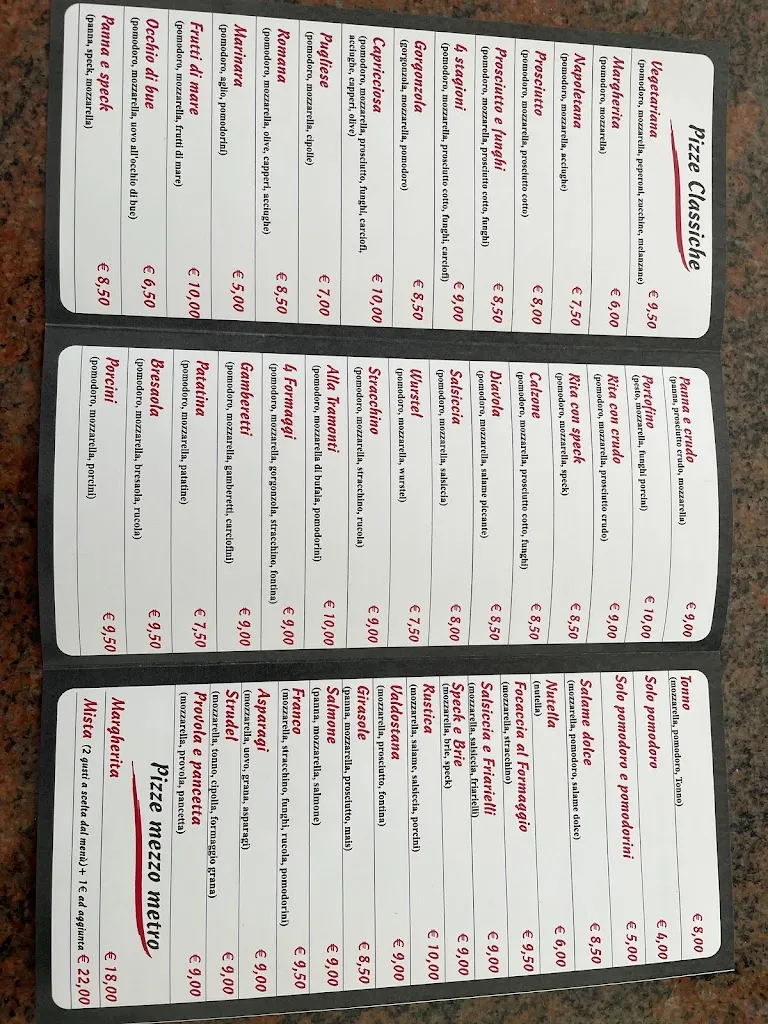 Pizze Classiche
Vegetariana € 9,50
(pomodoro, mozzarella, peperoni, zucchine, melanzane)
Margherita € 6,00
(pomodoro, mozzarella)
Napoletana € 7,50
(pomodoro, mozzarella, acciughe)
Prosciutto € 8,00
(pomodoro, mozzarella, prosciutto cotto)
Prosciutto e funghi € 8,50
(pomodoro, mozzarella, prosciutto cotto, funghi)
4 stagioni € 9,00
(pomodoro, mozzarella, prosciutto cotto, funghi, carciofi)
Gorgonzola € 8,50
(gorgonzala, mozzarella, pomodoro)
Capricciosa € 10,00
(pomodoro, mozzarella, prosciutto, funghi, carciofi,
acciughe, capperi, olive)
Pugliese € 7,00
(pomodoro, mozzarella, cipolle)
Romana € 8,50
(pomodoro, mozzarella, olive, capperi, acciughe)
Marinara € 5,00
(pomodoro, aglio, pomodorini)
Frutti di mare € 10,00
(pomodoro, mozzarella, frutti di mare)
Occhio di bue € 6,50
(pomodoro, mozzarella, uovo all'occhio di bue)
Panna e speck € 8,50
(panna, speck, mozzarella)
Panna e crudo € 9,00
(panna, prosciutto crudo, mozzarella)
Portofino € 10,00
(pesto, mozzarella, funghi porcini)
Rita con crudo € 9,00
(pomodoro, mozzarella, prosciutto crudo)
Rita con speck € 8,50
(pomodoro, mozzarella, speck)
Calzone € 8,50
(pomodoro, mozzarella, prosciutto cotto, funghi)
Diavola € 8,50
(pomodoro, mozzarella, salame piccante)
Salsiccia € 8,00
(pomodoro, mozzarella, salsiccia)
Wurstel € 7,50
(pomodoro, mozzarella, wurstel)
Stracchino € 9,00
(pomodoro, mozzarella, stracchino, rucola)
Alla Tramonti € 10,00
(pomodoro, mozzarella di bufala, pomodorini)
4 Formaggi € 9,00
(pomodoro, mozzarella, gorgonzola, stracchino, fontina)
Gamberetti € 9,00
(pomodoro, mozzarella, gamberetti, carciofini)
Patatina € 7,50
(pomodoro, mozzarella, patatine)
Bresaola € 9,50
(pomodoro, mozzarella, bresaola, rucola)
Porcini € 9,50
(pomodoro, mozzarella, porcini)
Tonno € 8,00
(mozzarella, pomodoro, Tonno)
Solo pomodoro € 4,00
Solo pomodoro e pomodorini € 5,00
Salame dolce € 8,50
(mozzarella, pomodoro, salame dolce)
Nutella € 6,00
(nutella)
Focaccia al Formaggio € 9,50
(mozzarella, stracchino)
Salsiccia e Friarielli € 9,00
(mozzarella, salsiccia, friarielli)
Speck e Brie € 9,00
(mozzarella, brie, speck)
Rustica € 10,00
(mozzarella, salame, salsiccia, porcini)
Valdostana € 9,00
(mozzarella, prosciutto, fontina)
Girasole € 8,50
(panna, mozzarella, prosciutto, mais)
Salmone € 9,00
(panna, mozzarella, salmone)
Franco € 9,50
(mozzarella, stracchino, funghi, rucola, pomodorini)
Asparagi € 9,00
(mozzarella, uovo, grana, asparagi)
Strudel € 9,00
(mozzarella, tonno, cipolla, formaggio grana)
Provola e pancetta € 9,00
(mozzarella, provola, pancetta)
Pizze mezzo metro
Margherita € 18,00
Mista (2 gusti a scelta dal menù) + 1€ ad aggiunta € 22,00